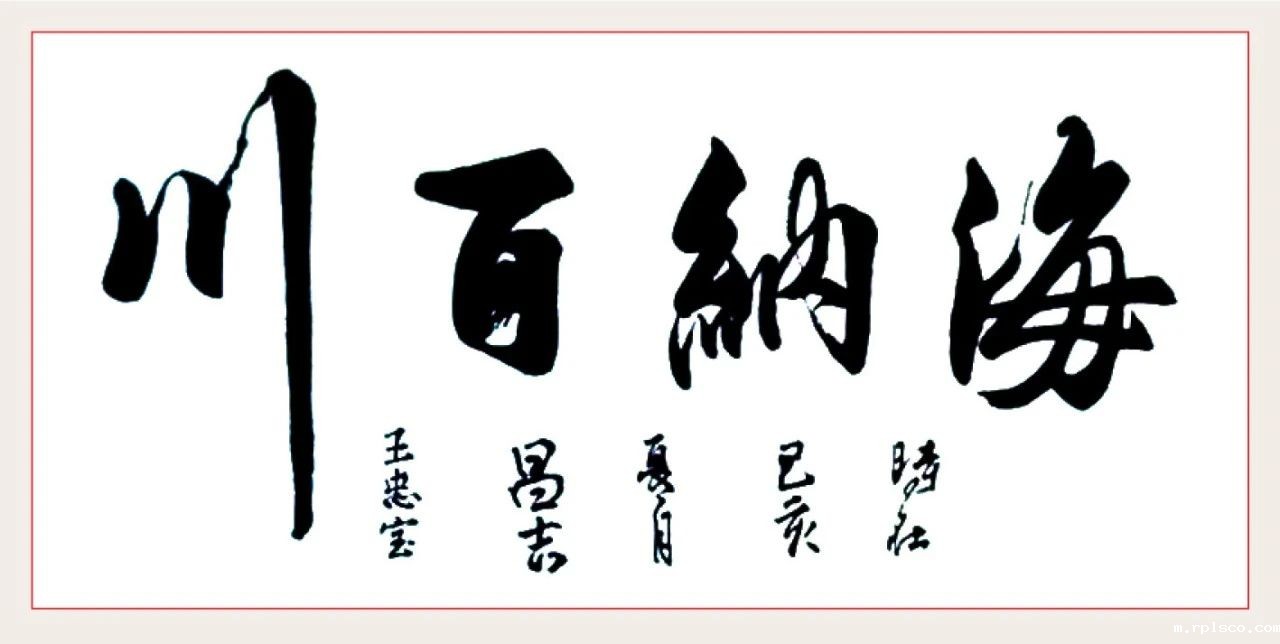 海納百川
時在
己亥
夏月
昌吉
王忠宝
m.rplsco.com